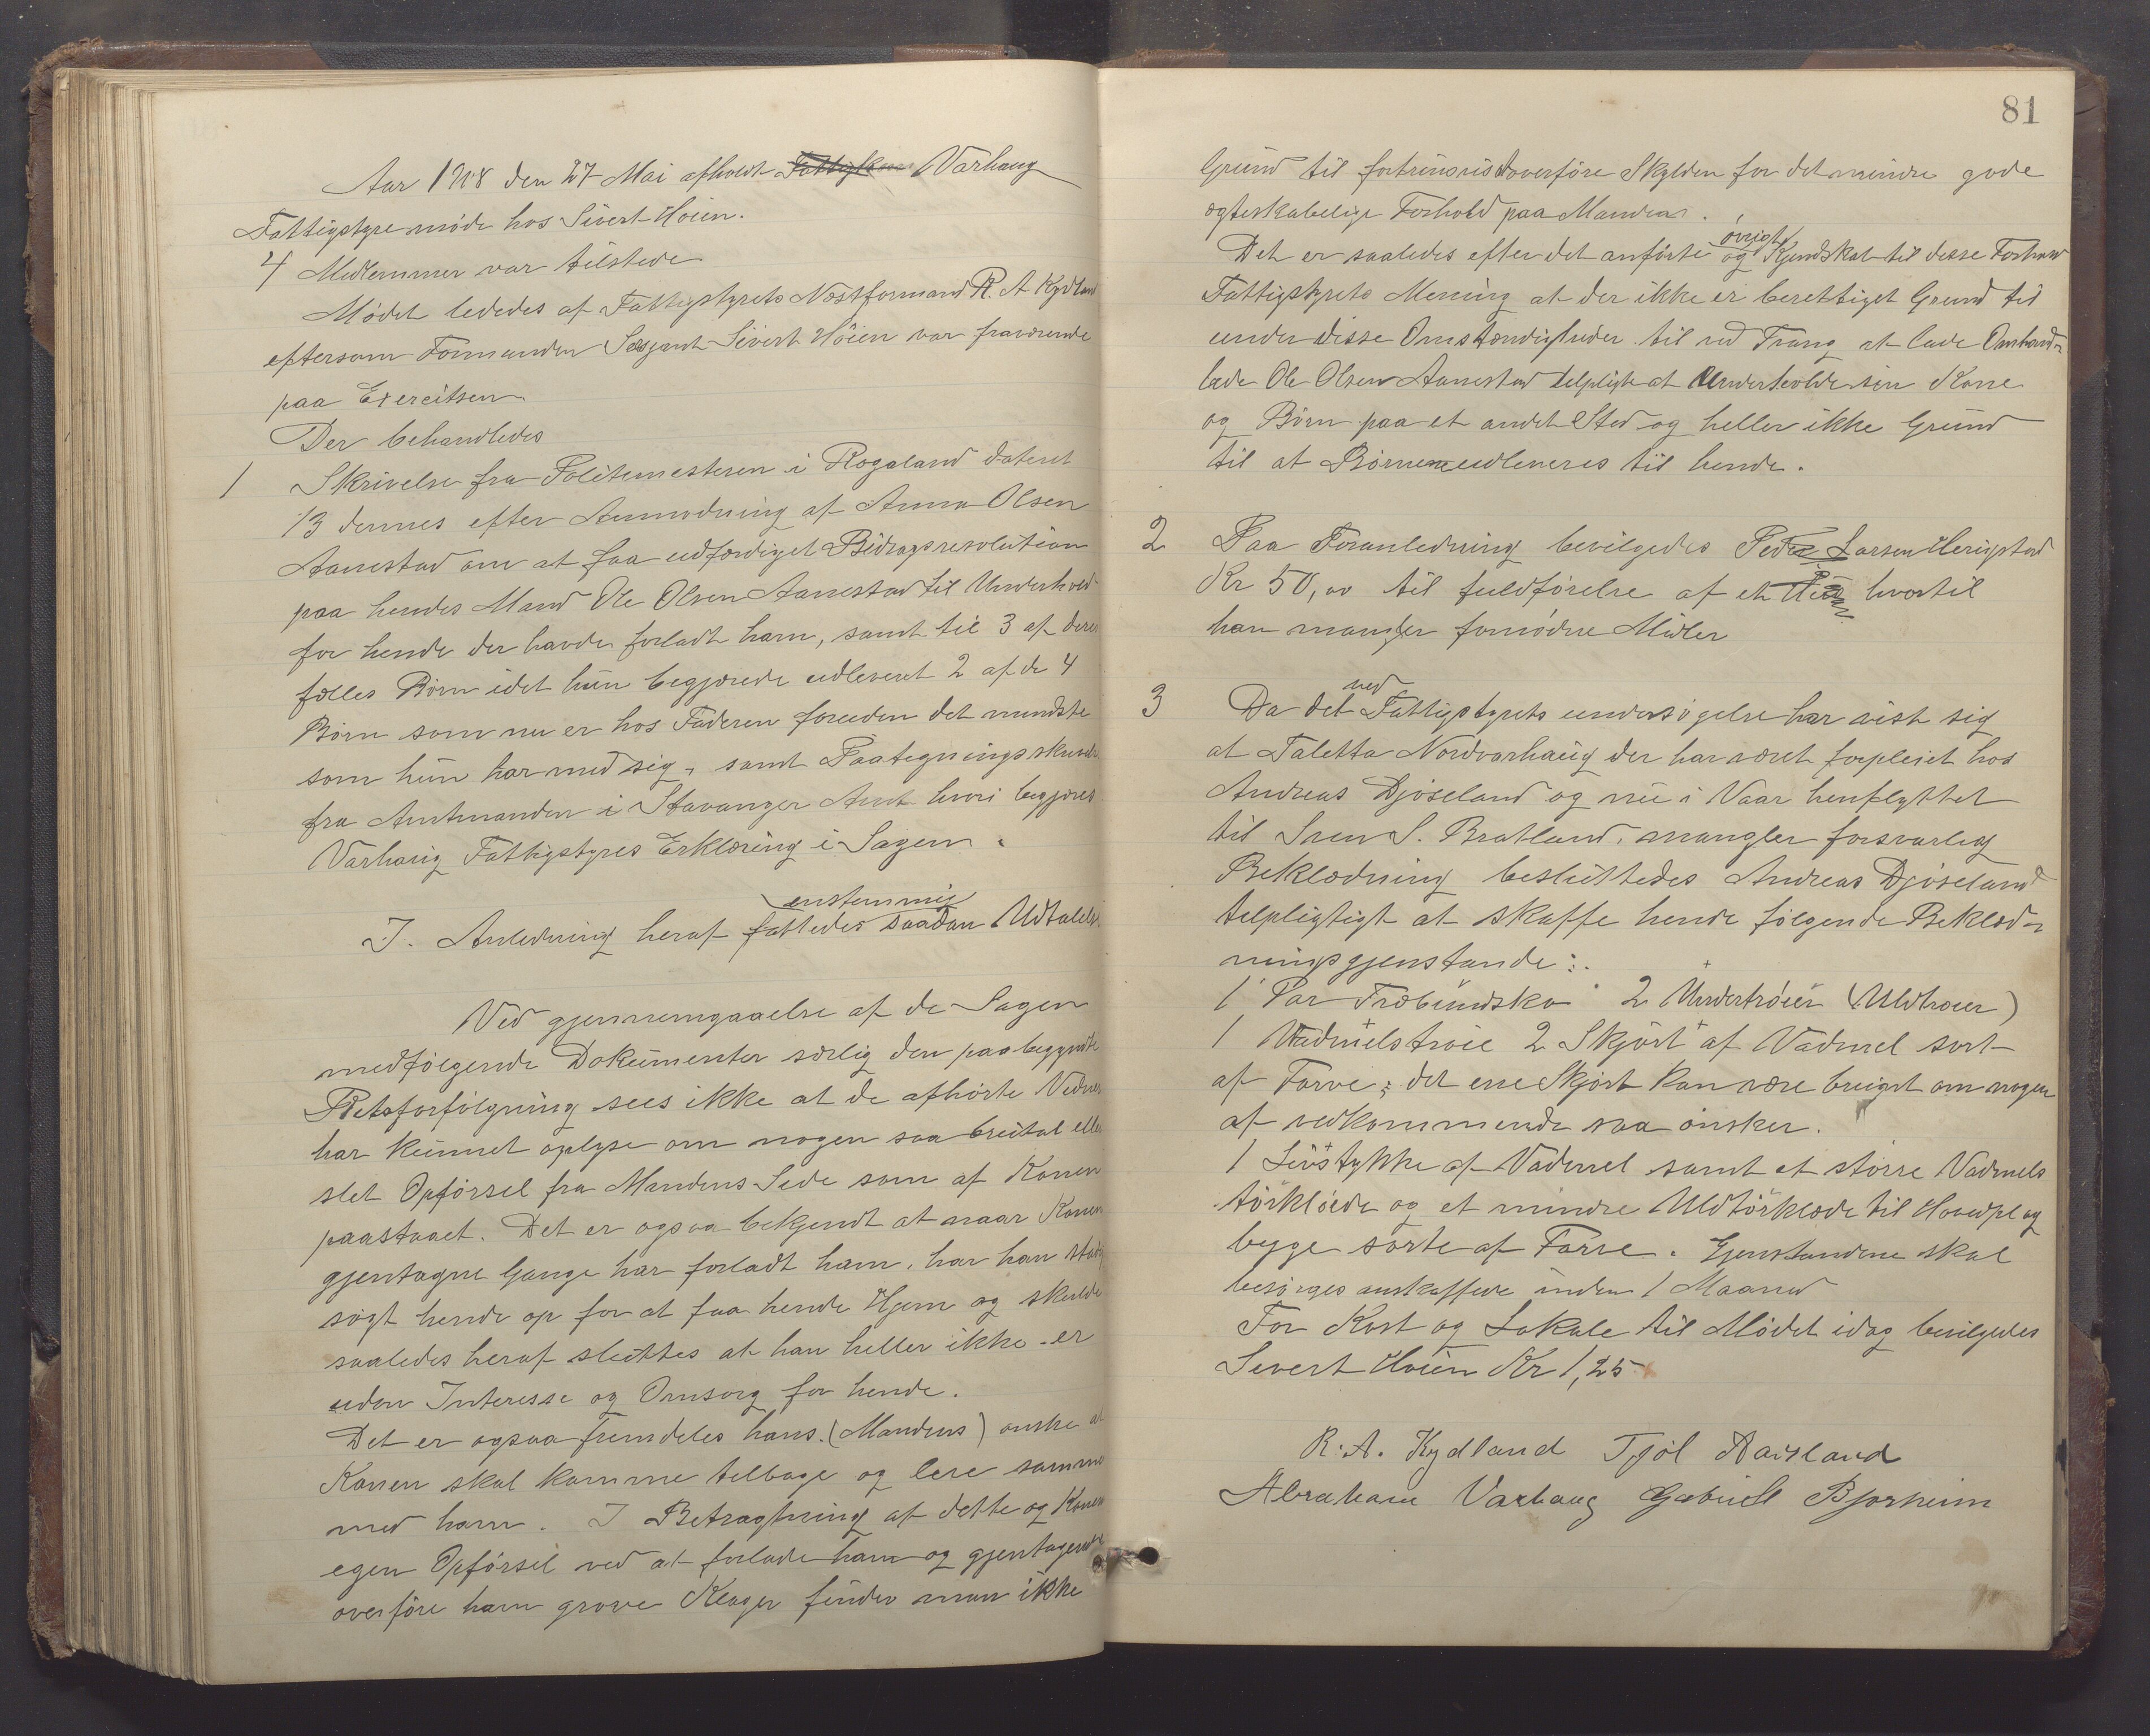 Aar 1908 den 27 Mai afholdt Varhaug
Fattigstyre møde hos Sivert Høien.
4 Medlemmer var tilstede
Mødet lededes af Fattigstyrets Næstformand R. A Kydland
eftersom Formanden Sersjant Sivert Høien var fraværende
paa Exercitsen
Der behandledes
1 Skrivelse fra Politimesteren i Rogaland dateret
13 dennes efter Anmodning af Anna Olsen
Aanestad om at faa udfærdiget Bidragsresolution
paa hendes Mand Ole Olsen Aanestad til Underhold
for hende der havde forladt ham, samt til 3 af deres
fælles Børn idet hun begjærede udleveret 2 af de 4
Børn som nu er hos Faderen foruden det mindste
som hun har med sig, samt Paategningsskrivelse
fra Amtmanden i Stavanger Amt hvori begjæres
Varhaug Fattigstyres Erklæring i Sagen.
I. Anledning heraf fattedes enstemmig saadan Udtalelse
Ved gjennemgaaelse af de Sagen
medfølgende Dokumenter særlig den paabegyndte
Retsforfølgning sees ikke at de afhørte Vidner
har kunnet oplyse om nogen saa brutal eller
slet Opførsel fra Mandens Side som af Konen
paastaaet. Det er ogsaa bekjendt at naar Konen
gjentagne Gange har forladt ham, har han stadig
søgt hende op for at faa hende Hjem og skulde
saaledes heraf sluttes at han heller ikke er
uden Interesse og Omsorg for hende.
Det er ogsaa fremdeles hans (Mandens) ønske at
Konen skal komme tilbage og leve sammen
med ham. I Betragtning af dette og Konens
egen Opførsel ved at forlade ham og gjentagende
overføre ham grove Klager finder man ikke
81
Grund til fortrinsvis at overføre Skylden for det mindre gode
ægteskabelige Forhold paa Manden.
Det er saaledes efter det anførte og øvrigt Kjendskab til disse Forhold
Fattigstyrets Mening at der ikke er berettiget Grund til
under disse Omstændigheder til ved Tvang at lade Omhand-
lede Ole Olsen Aanestad tilpligte at Underholde sin Kone
og Børn paa et andet Sted og heller ikke Grund
til at Børnene udleveres til hende.
2 Paa Foranledning bevilgedes Peder Larsen Herigstad
Kr 50,00 til fuldførelse af et hvortil
han mangler fornødne Midler
3 Da det ved Fattigstyrets undersøgelse har vist sig
at Taletta Nordvarhaug der har været forpleiet hos
Andreas Djøseland og nu i Vaar henflyttet
til Sven S. Bratland, mangler forsvarlig
Beklædning besluttedes Andreas Djøseland
tilpligtigt at skaffe hende følgende Beklæd-
ningsgjenstande:
1 Par Træbundsko 2 Undertrøier (Uldtrøier)
1 Vadmelstrøie 2 Skjørt af Vadmel sort
af Farve; det ene Skjørt kan være brugt om nogen
af vedkommende saa ønsker.
1 Livstykke af Vadmel samt et større Vadmels
tørklæde og et mindre Uldtørklæde til Hovedplag
begge sorte af Farve. Gjenstandene skal
besørges anskaffede inden 1 Maaned
For Kost og Lokale til Mødet idag bevilgedes
Sivert Høien Kr 1,25
R. A. Kydland Tjøl Aarsland
Abraham Varhaug Gabriel Bjorheim